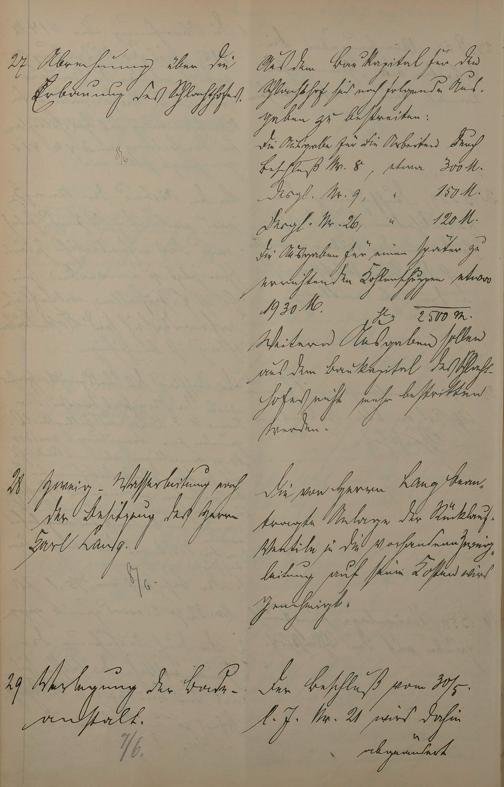 27 Abrechnung über die
Erbauung des Schlachthofes.
8/6
Aus dem Baukapital für den
Schlachthof sind noch folgende Aus-
gaben zu bestreiten:
Die Ausgabe für die Arbeiten durch
Beschluß Nr. 8, etwa 300 M.
desgl. Nr. 9, " 150 M.
desgl. Nr. 26, " 120 M.
die Ausgaben für einen später zu
errichtenden Kohlenschuppen etwa
1930 M.
2500 M.
Weitere Ausgaben sollen
aus dem Baukapital des Schlacht-
hofes nicht mehr bestritten
werden.
28 Zweig-Wasserleitung nach
der Besitzung des Herrn
Karl Lang.
8/6.
Die von Herrn Lang bean-
tragte Anlage der Rücklauf-
Ventile in die vorhandene Zweig-
leitung auf seine Kosten wird
genehmigt.
29 Verlegung der Bade-
anstalt.
7/6.
Der Beschluß vom 30/5.
l. J. Nr. 21 wird dahin
abgeändert